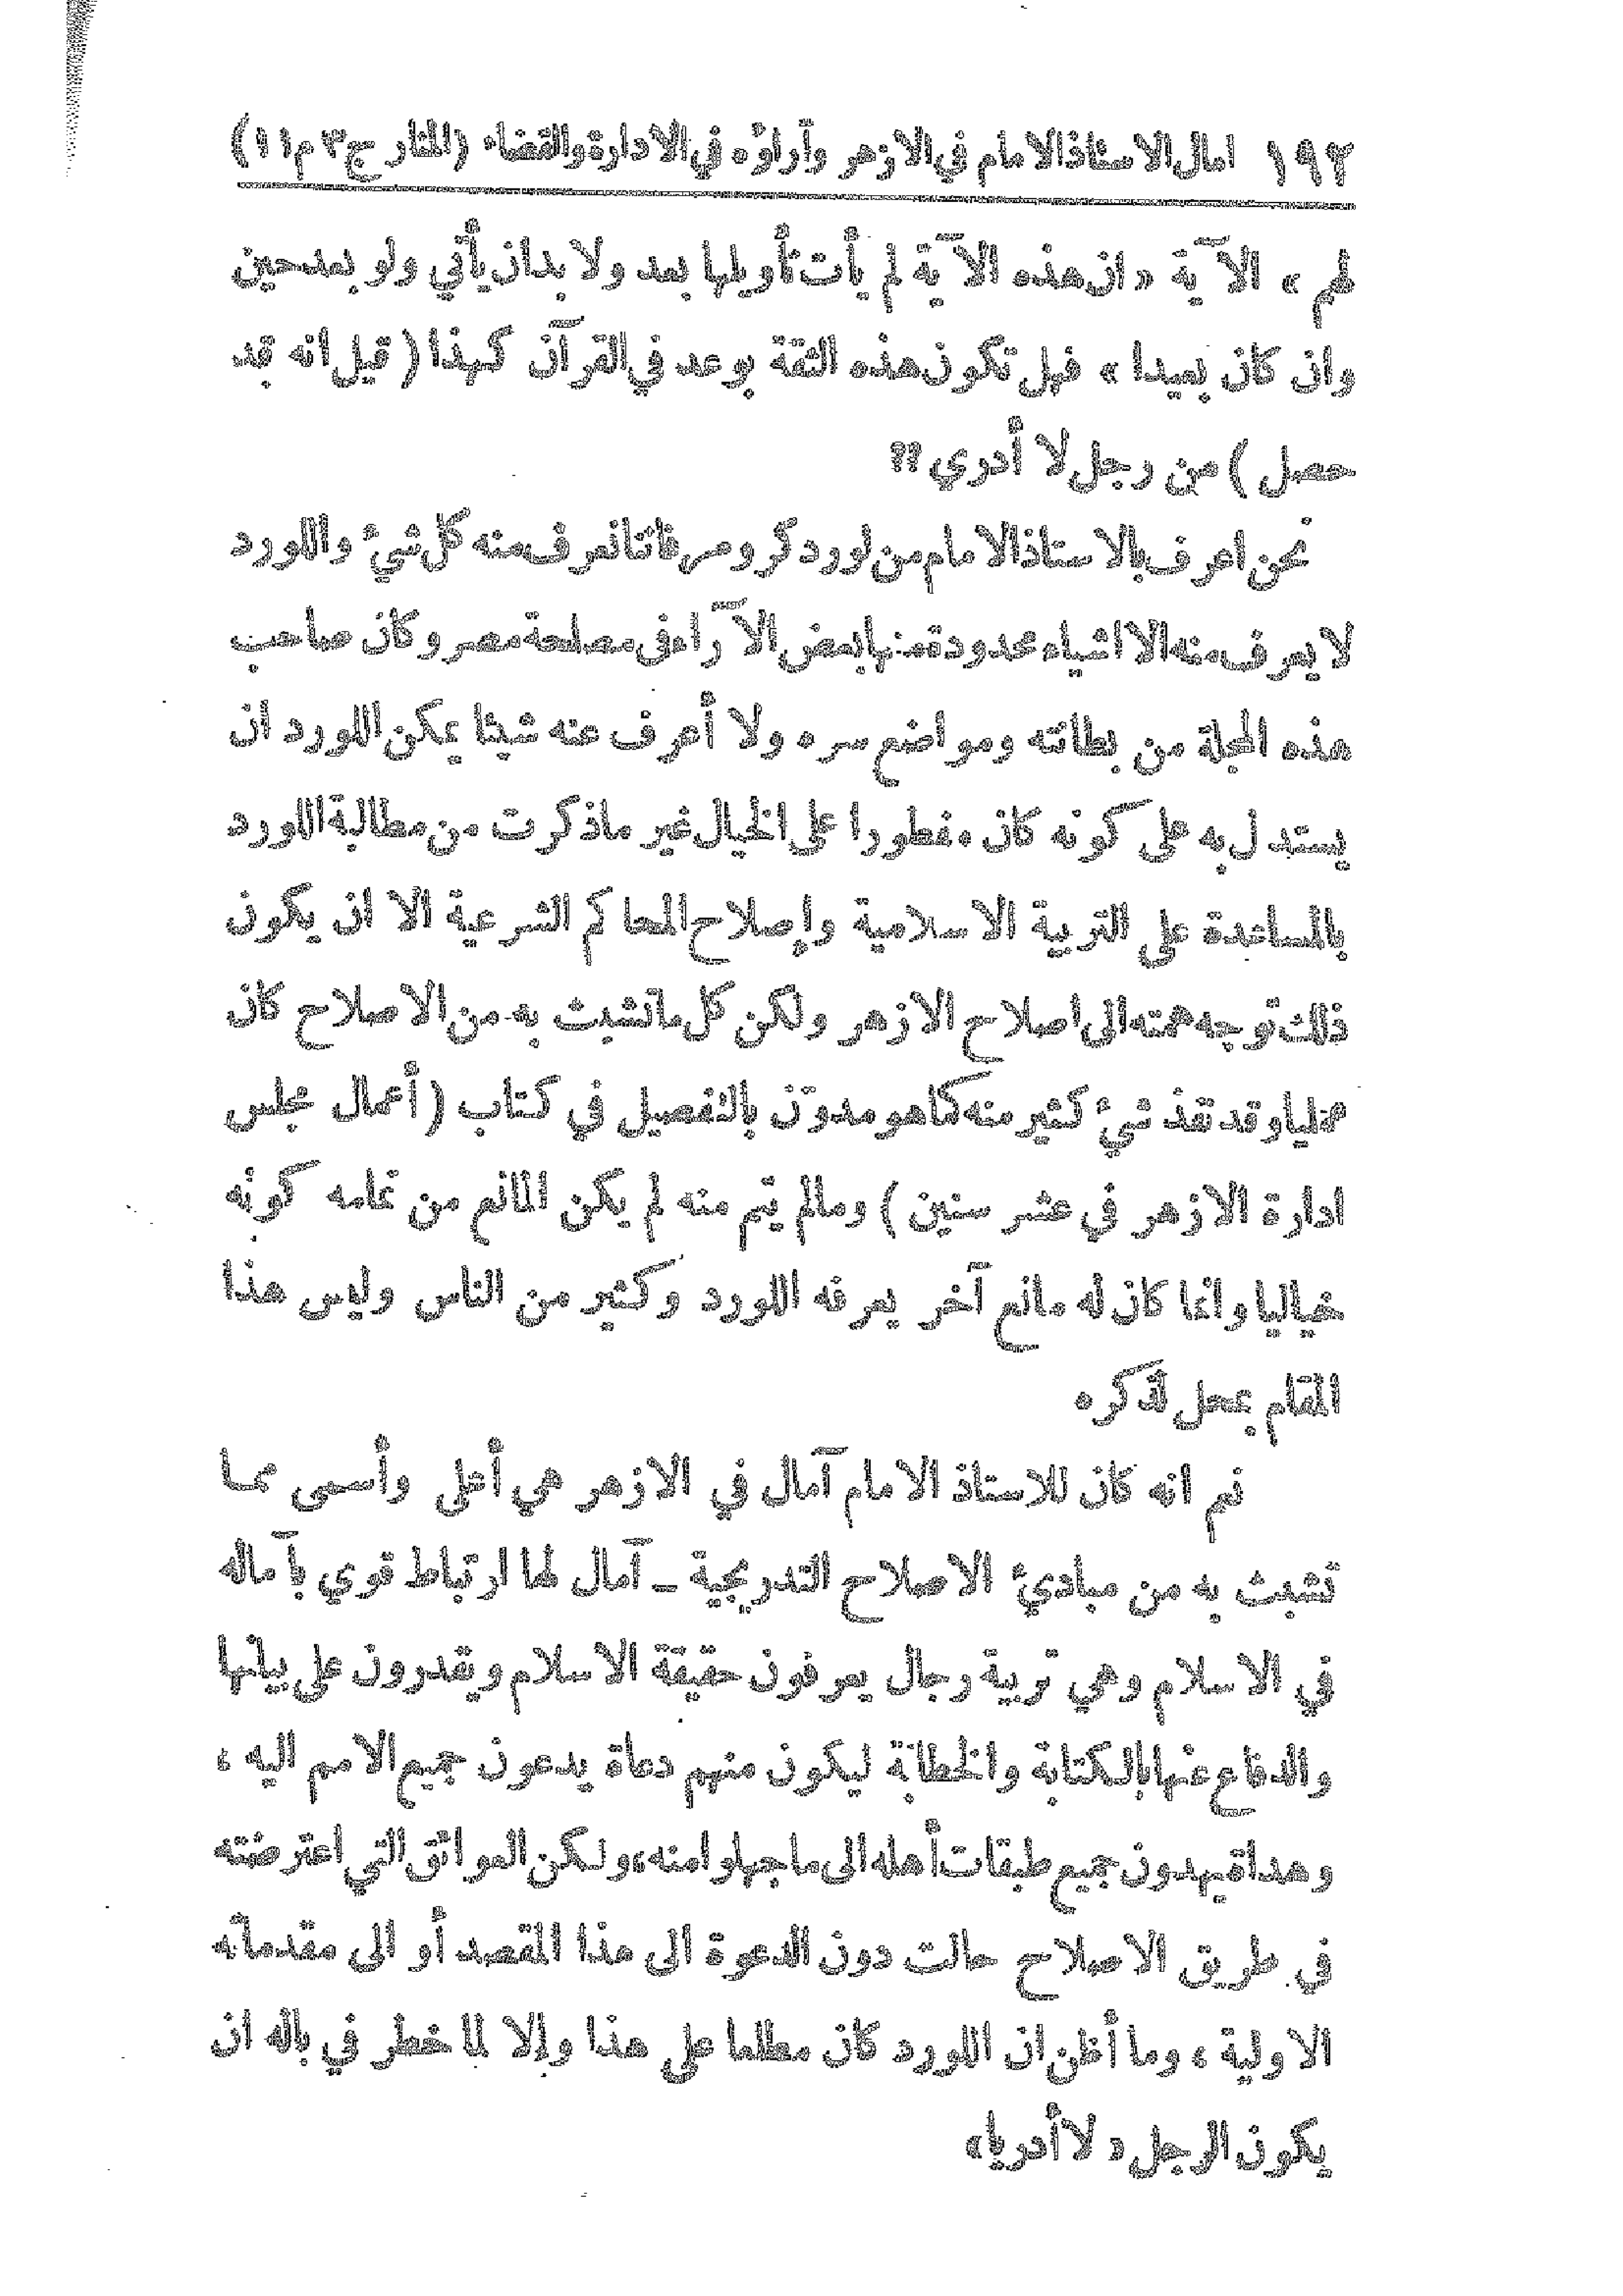 ١٩٢ امال الاستاذ الامام في الازهر وآراؤه في الادارة والقضاء (المنار ج٣ م١١)
لهم » الآية « ان هذه الآية لم يأت تأويلها بعد ولا بد ان يأتي ولو بعد حين
وان كان بعيدا » فهل تكون هذه الثقة بوعد في القرآن كهذا ( قيل انه قد
حصل ) من رجل لا أدري ؟؟
نحن اعرف بالاستاذ الامام من لورد كرومر فاننا نعرف منه كل شيئ واللورد
لا يعرف منه الا اشياء محدودة منها بعض الآراء في مصلحة مصر وكان صاحب
هذه المجلة من بطانته ومواضع سره ولا أعرف عنه شيئا يمكن اللورد ان
يستدل به على كونه كان مفطورا على الخيال غير ما ذكرت من مطالبة اللورد
بالمساعدة على التربية الاسلامية وإصلاح المحاكم الشرعية الا ان يكون
ذلك توجه همته الى اصلاح الازهر ولكن كل ما تشبث به من الاصلاح كان
عمليا وقد نفذ شيئ كثير منه كما هو مدون بالتفصيل في كتاب ( أعمال مجلس
ادارة الازهر في عشر سنين ) ومالم يتم منه لم يكن المانع من تمامه كونه
خياليا وانما كان له مانع آخر يعرفه اللورد وكثير من الناس وليس هذا
المقام بمحل لذكره
نعم انه كان للاستاذ الامام آمال في الازهر هي أعلى وأسمى مما
تشبث به من مبادئ الاصلاح التدريجية ـ آمال لها ارتباط قوي بآماله
في الاسلام وهي تربية رجال يعرفون حقيقة الاسلام ويقدرون على بيانها
والدفاع عنها بالكتابة والخطابة ليكون منهم دعاة يدعون جميع الامم اليه ،
وهداة يهدون جميع طبقات أهله الى ما جهلوا منه ، ولكن العوائق التي اعترضته
في طريق الاصلاح حالت دون الدعوة الى هذا المقصد أو الى مقدماته
الاولية ، وما أظن ان اللورد كان مطلعا على هذا وإلا لما خطر في باله ان
يكون الرجل « لا أدريا »